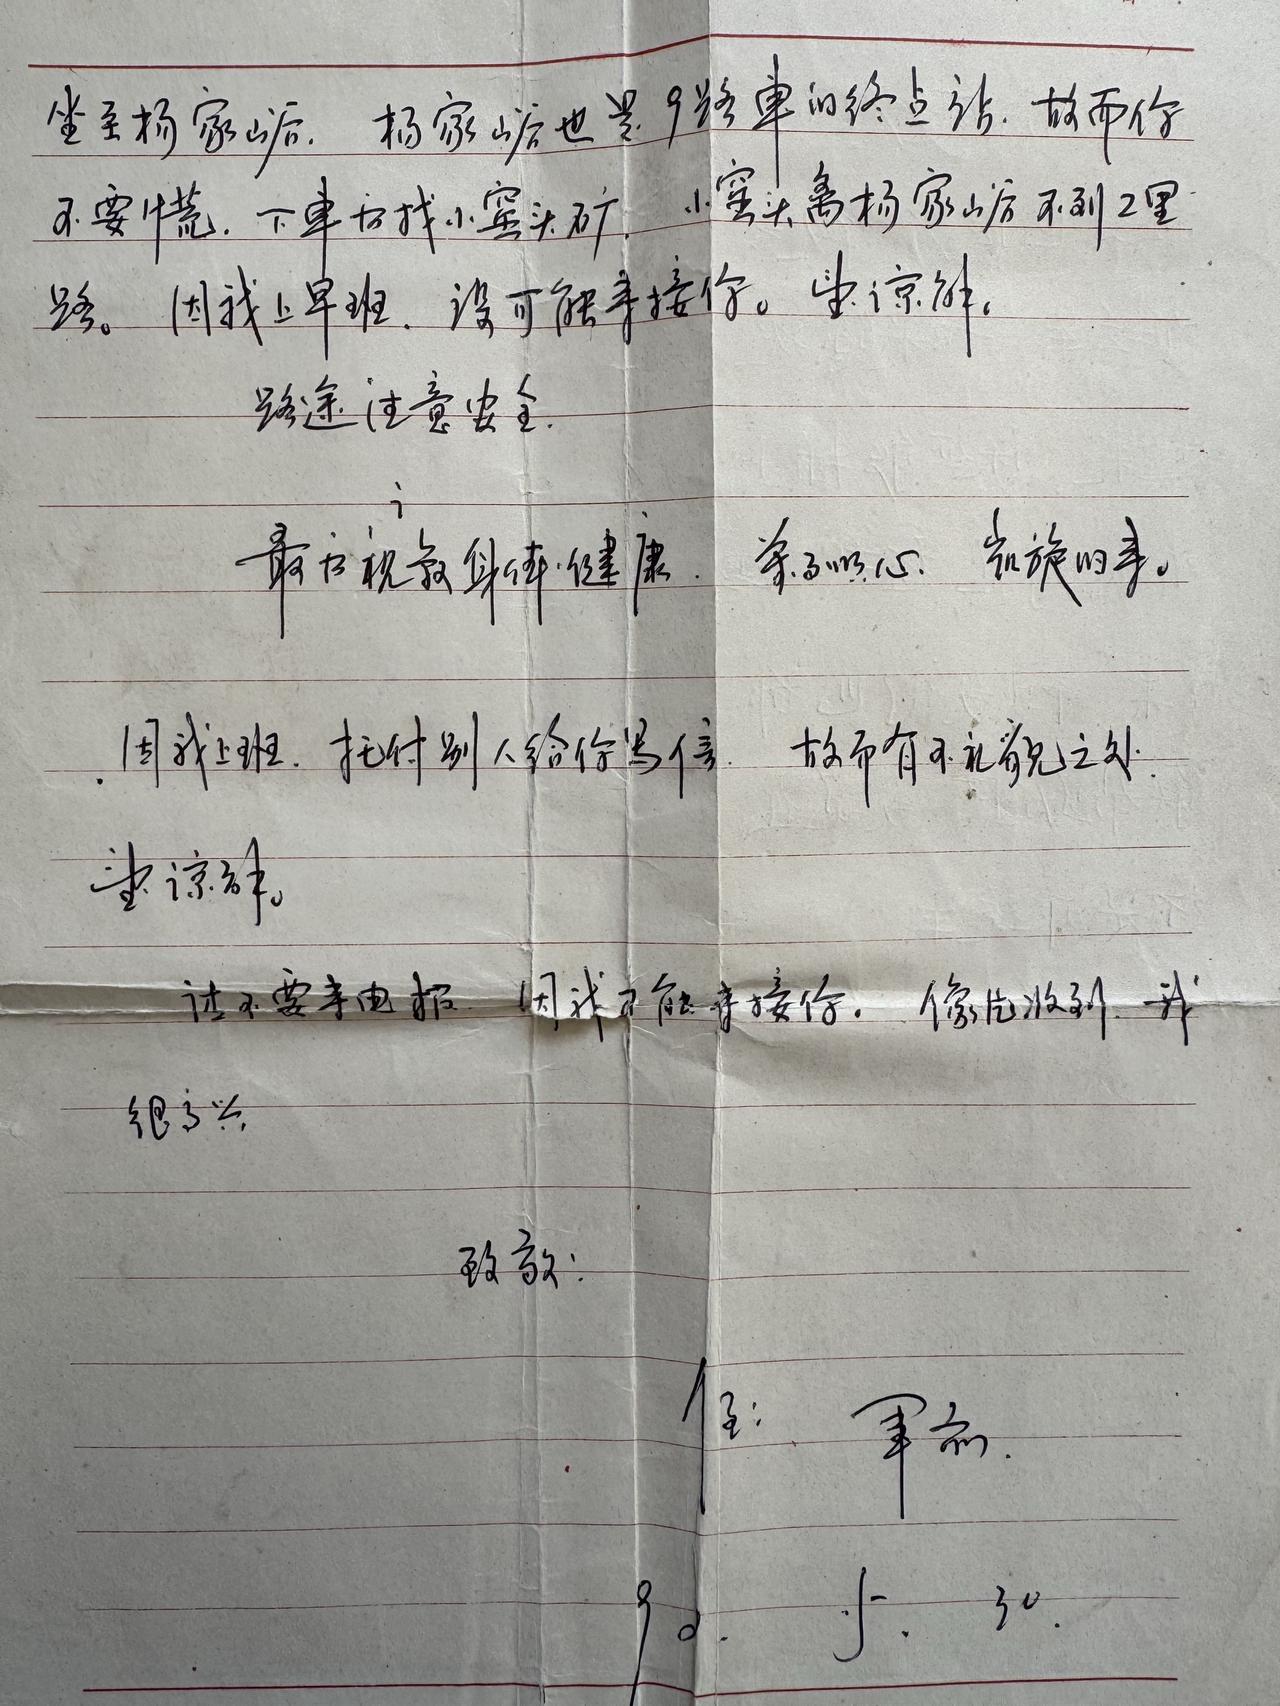 坐至杨家峪. 杨家峪也是9路车的终点站. 故而你
不要慌. 下车后找小窑头矿. 小窑头离杨家峪不到2里
路。 因我上早班. 没可能来接你。 望谅解。
路途注意安全.
最后祝 身体健康. 凯旋的来。
因我上班. 托付别人给你写信. 故而有不礼貌之处.
望谅解。
请不要来电报 因我不能来接你. 像片收到. 我
很高兴
致敬:
侄: 军
90. 5. 30.